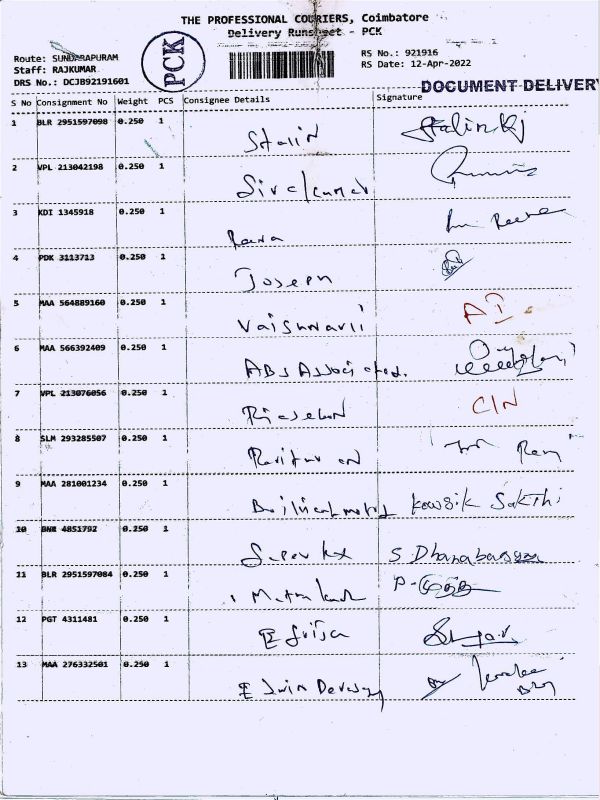 THE PROFESSIONAL COURIERS, Coimbatore
Delivery Runsheet - PCK
Route: SUNDARAPURAM
Staff: RAJKUMAR
DRS No.: DCJB92191601
PCK
RS No.: 921916
RS Date: 12-Apr-2022
DOCUMENT DELIVERY
S No Consignment No Weight PCS Consignee Details Signature
1 BLR 2951597098 0.250 1 Stalin Stalin Kj
2 VPL 213042198 0.250 1 Sivakumar
3 KDI 1345918 0.250 1
4 PDK 3113713 0.250 1 Joseph
5 MAA 564889160 0.250 1 Vaishnavii
6 MAA 566392409 0.250 1 ABS Associated.
7 VPL 213076056 0.250 1 CIN
8 SLM 293285507 0.250 1
9 MAA 281001234 0.250 1 Kowsik Sakthi
10 BNR 4851792 0.250 1 S Dhanabagya
11 BLR 2951597084 0.250 1
12 PGT 4311481 0.250 1
13 MAA 276332501 0.250 1